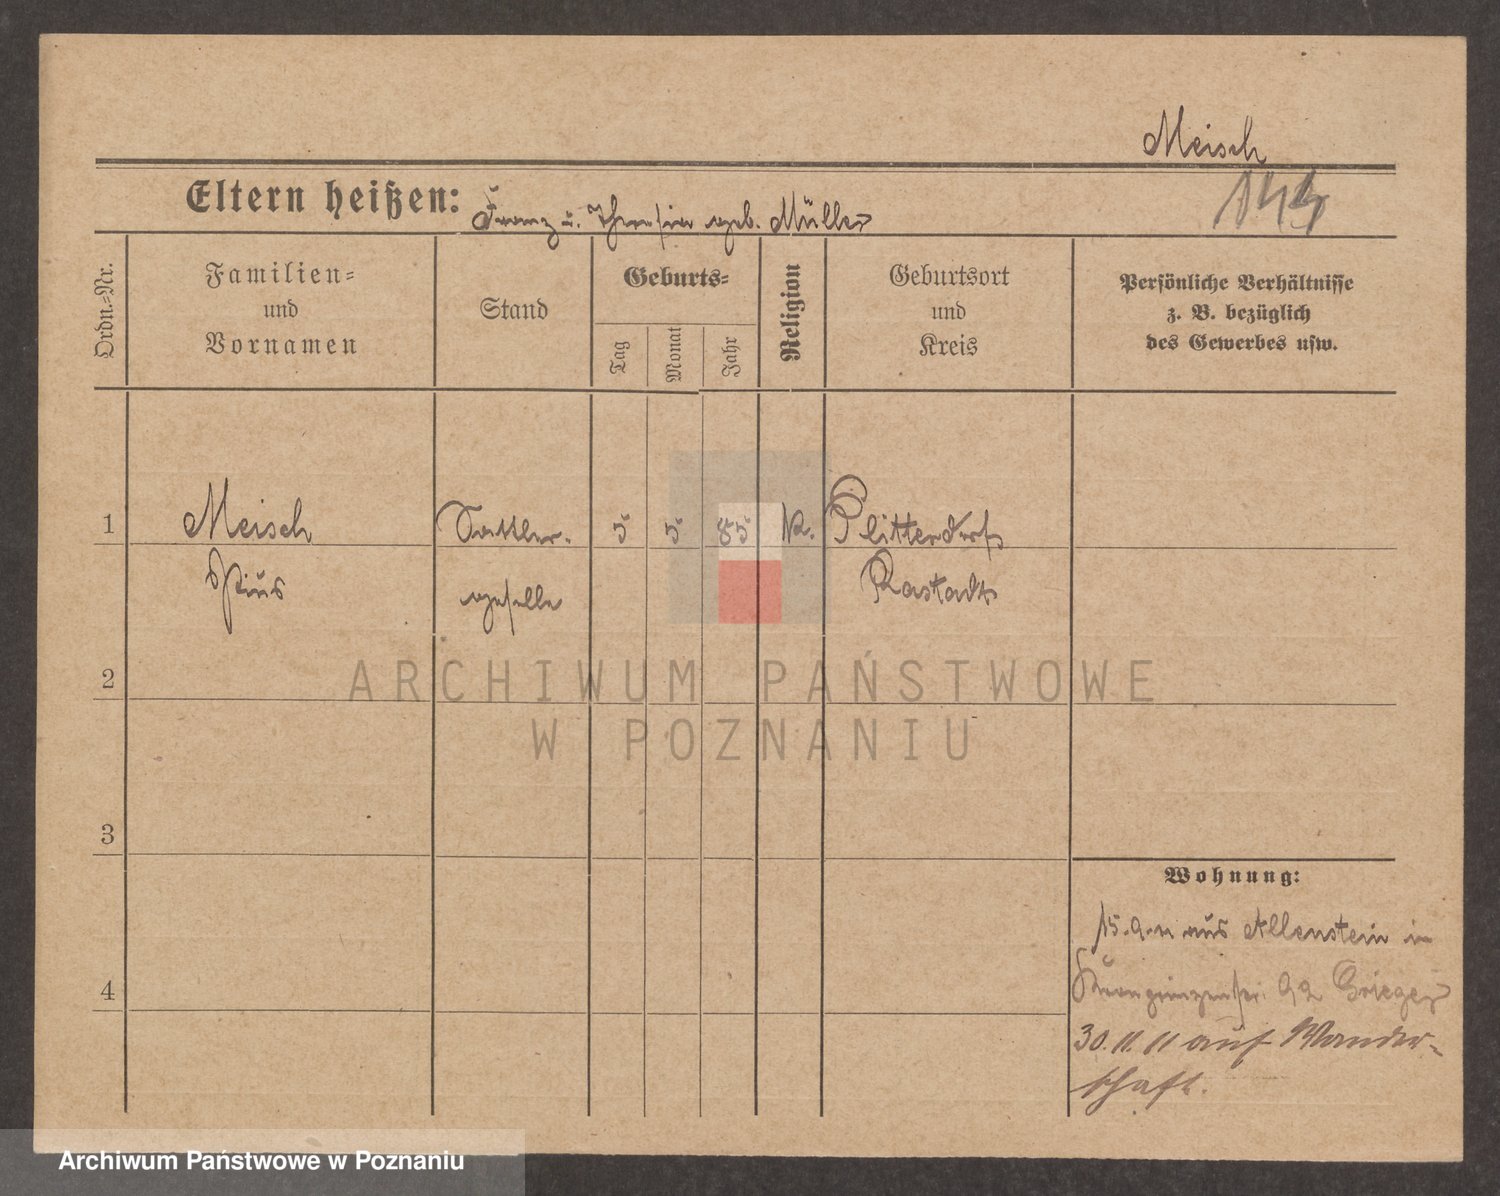 Meisch
144
Eltern heißen: Franz u. Theresia geb. Müller
Ordn.=Nr.
Familien=
und
Vornamen
Stand
Geburts=
Tag
Monat
Jahr
Religion
Geburtsort
und
Kreis
Persönliche Verhältnisse
z. B. bezüglich
des Gewerbes usw.
1
Meisch
Pius
Sattler-
geselle
5
5
85
K.
Plittersdorf
Rastadt
2
3
4
Wohnung:
15.9.11 aus Allenstein in
Kronprinzenstr. 92 Grieger
30.11.11 auf Wander-
schaft.
ARCHIWUM PAŃSTWOWE
W POZNANIU
Archiwum Państwowe w Poznaniu